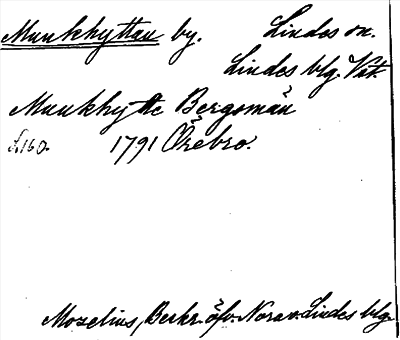 Munkhyttan by. Lindes sn.
Lindes blg. Vstm.
Munkhytte Bergsmän
s.160. 1791 Örebro.
Mozelius, Beskr. öfv. Nora o. Lindes blg.